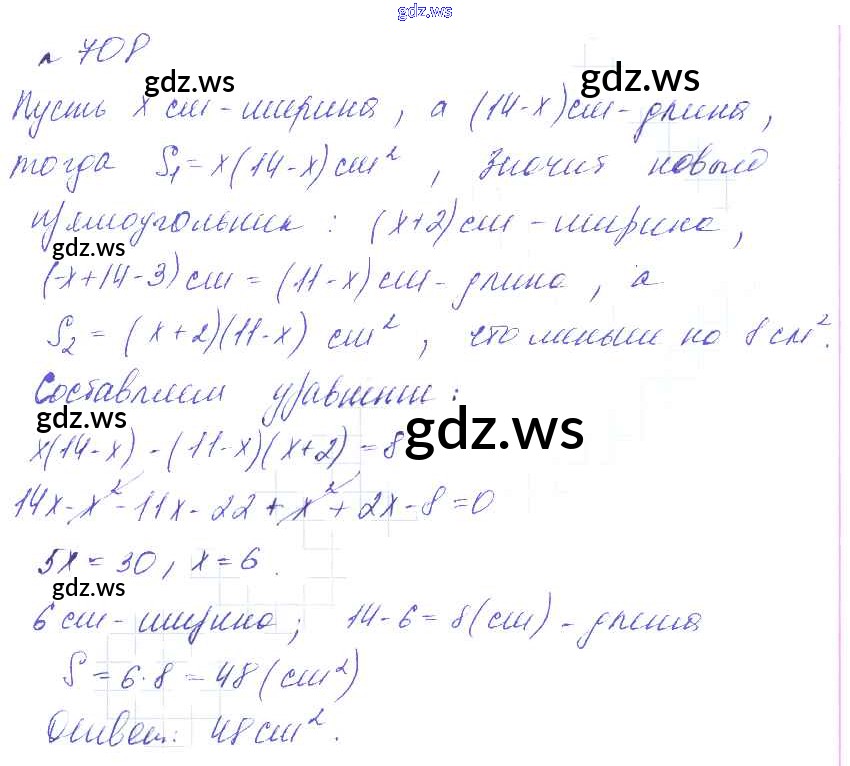 gdz.ws
№ 708
gdz.ws
gdz.ws
Пусть x см - ширина, а (14-x)см - длина,
тогда S₁=x(14-x)см², Значит новый
прямоугольник: (x+2)см - ширина,
gdz.ws
(-x+14-3)см = (11-x)см - длина, а
S₂ = (x+2)(11-x) см², что меньше на 8 см².
Составляем уравнение:
gdz.ws
gdz.ws
x(14-x) - (11-x)(x+2) = 8
14x - x² - 11x - 22 + x² + 2x - 8 = 0
5x = 30, x = 6.
gdz.ws
6 см - ширина; 14-6 = 8(см) - длина
S = 6·8 = 48 (см²)
Ответ: 48см².